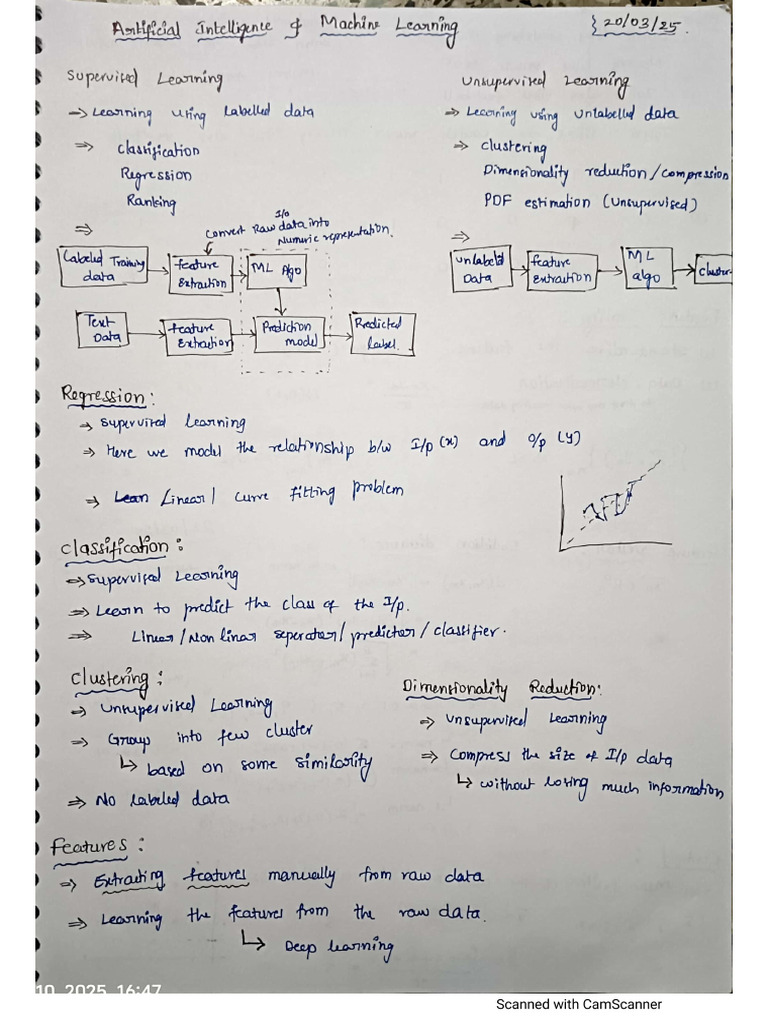 Artificial Intelligence & Machine Learning
20/03/25.
Supervised Learning
⇒ Learning using Labelled data
⇒ Classification
Regression
Ranking
⇒
I/o
Convert Raw data into
Numeric representation.
Labeled Training
data
feature
Extraction
ML Algo
Text
Data
feature
Extraction
Prediction
model
Predicted
Label.
Unsupervised Learning
⇒ Learning using Unlabelled data
⇒ Clustering
Dimensionality reduction/compression
PDF estimation (Unsupervised)
⇒
Unlabeld
Data
feature
Extraction
ML
algo
Cluster
Regression:
⇒ Supervised Learning
⇒ Here we model the relationship b/w I/p (x) and o/p (y)
⇒ Lean Linear / Curve fitting problem
Classification:
⇒ Supervised Learning
⇒ Learn to predict the class of the I/p.
⇒ Linear / Non linar seperator / predictor / classifier.
Clustering:
⇒ Unsupervised Learning
⇒ Group into few cluster
↳ based on some similarity
⇒ No labeled data
Dimensionality Reduction:
⇒ Unsupervised Learning
⇒ Compress the size of I/p data
↳ without losing much information
Features:
⇒ Extracting features manually from raw data
⇒ Learning the features from the raw data.
↳ Deep learning
10 2025 16:47
Scanned with CamScanner